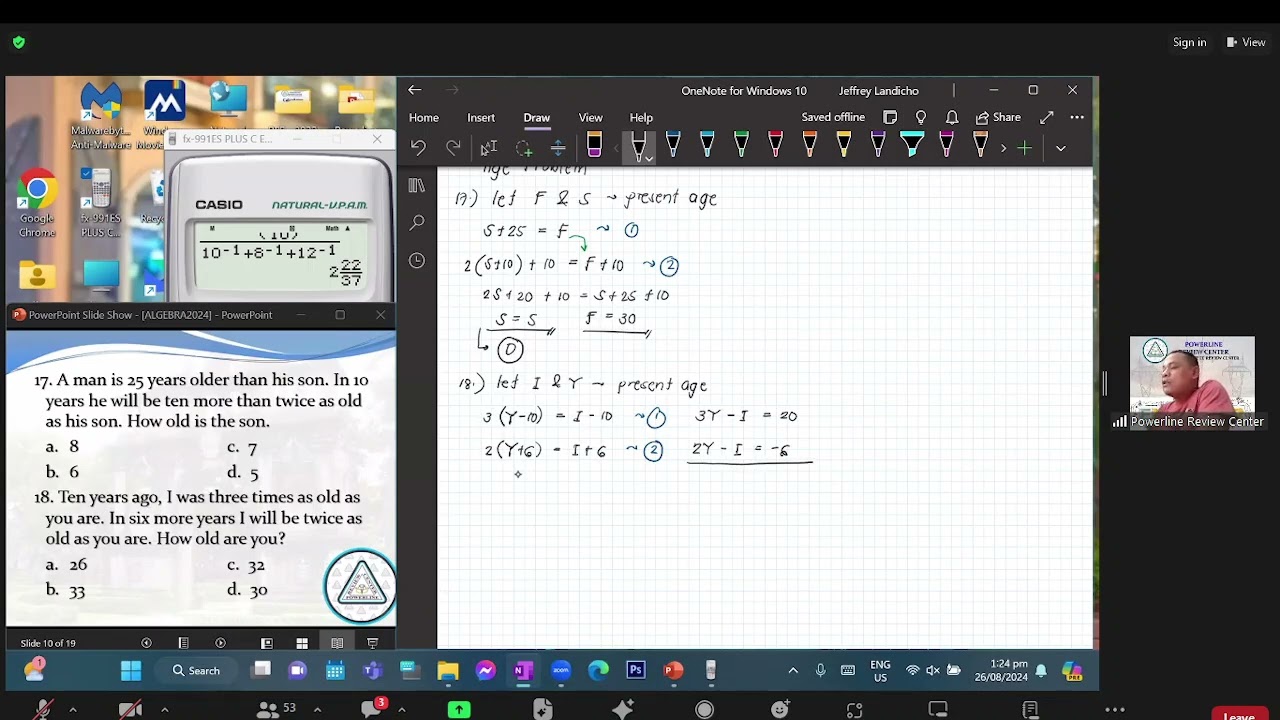 Sign in
View
OneNote for Windows 10
Jeffrey Landicho
Home
Insert
Draw
View
Help
Saved offline
Share
Malwarebyt...
Anti-Malware
Google
Chrome
fx-991ES
PLUS C...
fx-991ES PLUS C E...
CASIO
NATURAL-V.P.A.M.
M
Math
10⁻¹+8⁻¹+12⁻¹
2 22/37
PowerPoint Slide Show - [ALGEBRA2024] - PowerPoint
17. A man is 25 years older than his son. In 10
years he will be ten more than twice as old
as his son. How old is the son.
a. 8
c. 7
b. 6
d. 5
18. Ten years ago, I was three times as old as
you are. In six more years I will be twice as
old as you are. How old are you?
a. 26
c. 32
b. 33
d. 30
Slide 10 of 19
Age Problem
17.) let F & S → present age
S+25 = F ~ 1
2(S+10) + 10 = F+10 ~ 2
2S+20 + 10 = S+25 +10
S = 5 F = 30
D
18.) let I & Y → present age
3(Y-10) = I - 10 ~ 1 3Y - I = 20
2(Y+6) = I + 6 ~ 2 2Y - I = -6
POWERLINE
REVIEW CENTER
Powerline Review Center
Search
ENG
US
1:24 pm
26/08/2024
53
3
Leave